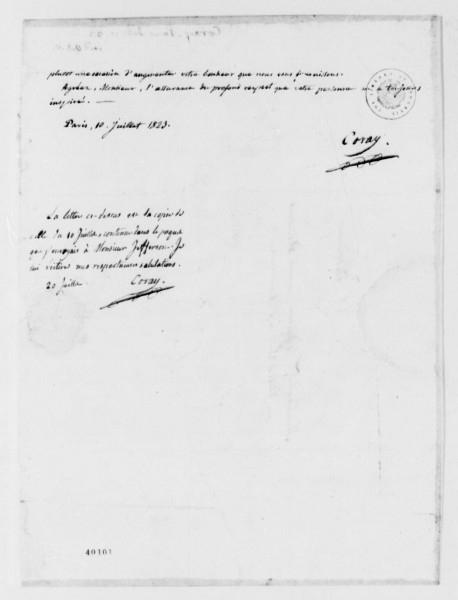 plutot une occasion d'augmenter votre bonheur que nous vous fournissons.
Agréez, Monsieur, l'assurance du profond respect que votre personne m'a toujours
inspiré.
Paris, 10 Juillet 1823.
Coray.
La lettre ci-dessus est la copie de
celle du 10 Juillet, contenue dans le paquet
que j'envoyais à Monsieur Jefferson. Je
lui réitère mes respectueuses salutations.
20 Juillet. Coray.
40101